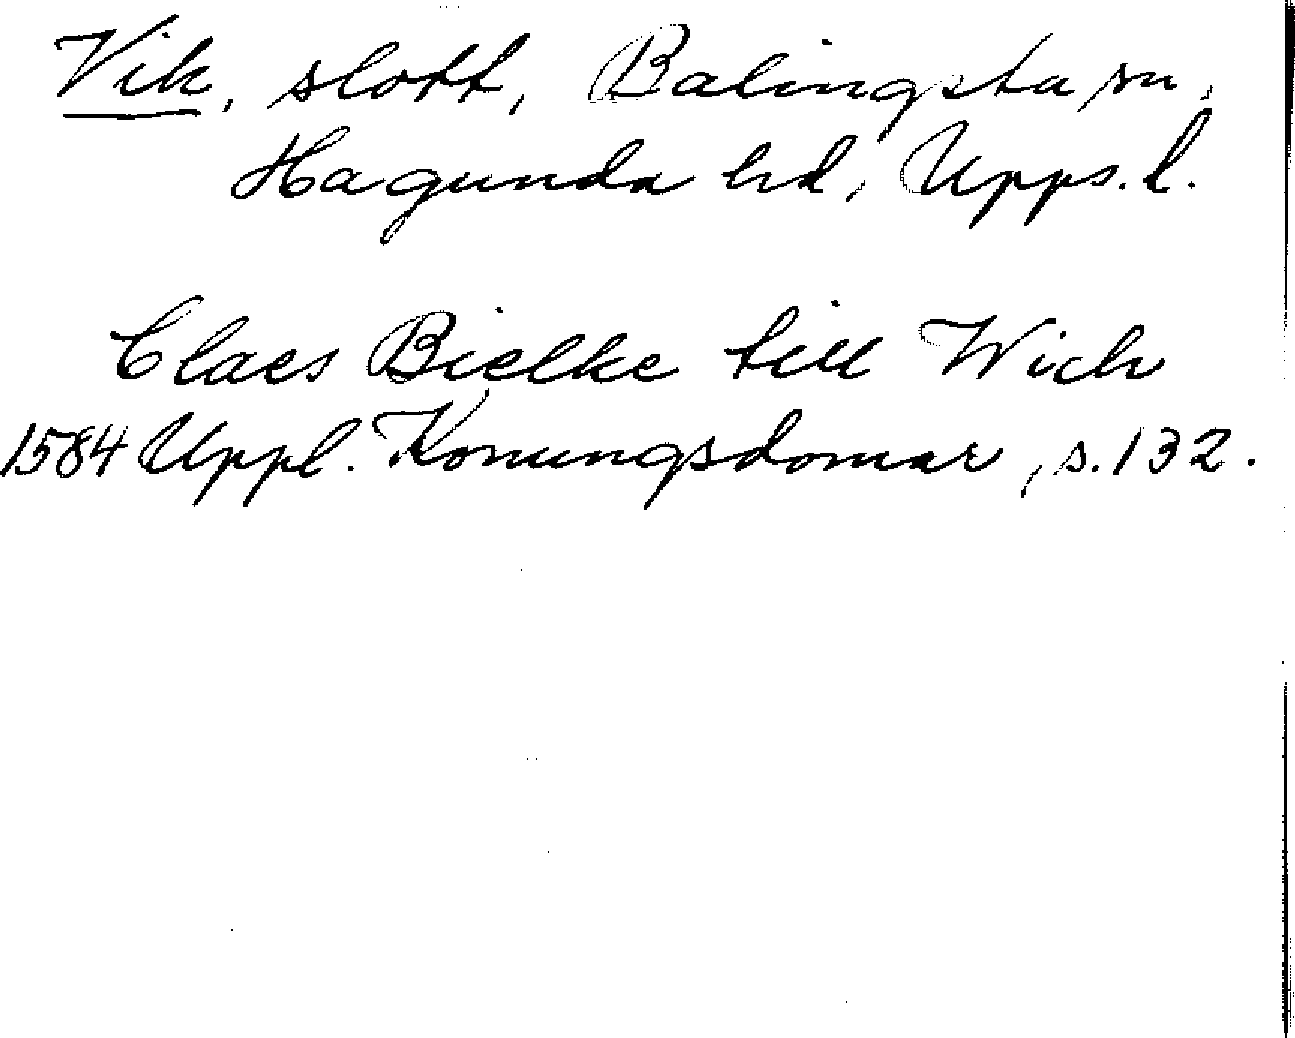 Vik, slott, Balingsta sn,
Hagunda hd, Upps. l.
Claes Bielke till Wich
1584 Uppl. Konungsdomar, s. 132.